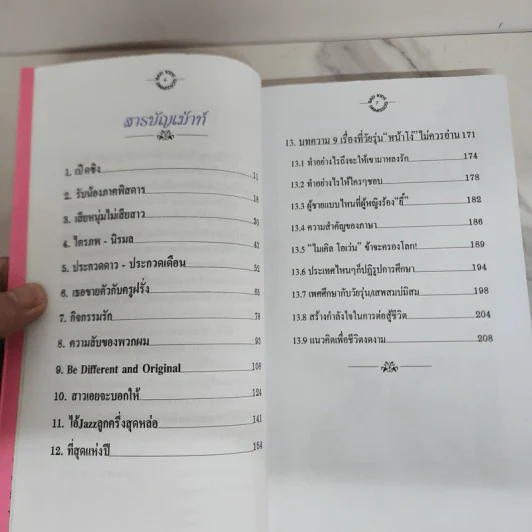 6
สารบัญเม้าท์
1. เปิดซิง 11
2. รับน้องภาคพิสดาร 18
3. เสียหนุ่มไม่เสียสาว 36
4. ไตรภพ - นิรมล 42
5. ประกวดดาว - ประกวดเดือน 52
6. เธอขายตัวกับครูฝรั่ง 65
7. กิจกรรมรัก 78
8. ความลับของพวกผม 93
9. Be Different and Original 108
10. สาวเอยจะบอกให้ 124
11. ไอ้Jazzลูกครึ่งสุดหล่อ 141
12. ที่สุดแห่งปี 154
7
13. บทความ 9 เรื่องที่วัยรุ่น"หน้าโง่"ไม่ควรอ่าน 171
13.1 ทำอย่างไรถึงจะให้เขามาหลงรัก 174
13.2 ทำอย่างไรให้ใครๆชอบ 178
13.3 ผู้ชายแบบไหนที่ผู้หญิงร้อง"ยี้" 182
13.4 ความสำคัญของภาษา 186
13.5 "ไมเคิล โอเว่น" ช้าจะครองโลก! 189
13.6 ประเทศไหนๆก็ปฏิรูปการศึกษา 194
13.7 เพศศึกษากับวัยรุ่น/เสพสมบ่มิสม 198
13.8 สร้างกำลังใจในการต่อสู้ชีวิต 204
13.9 แนวคิดเพื่อชีวิตงดงาม 208